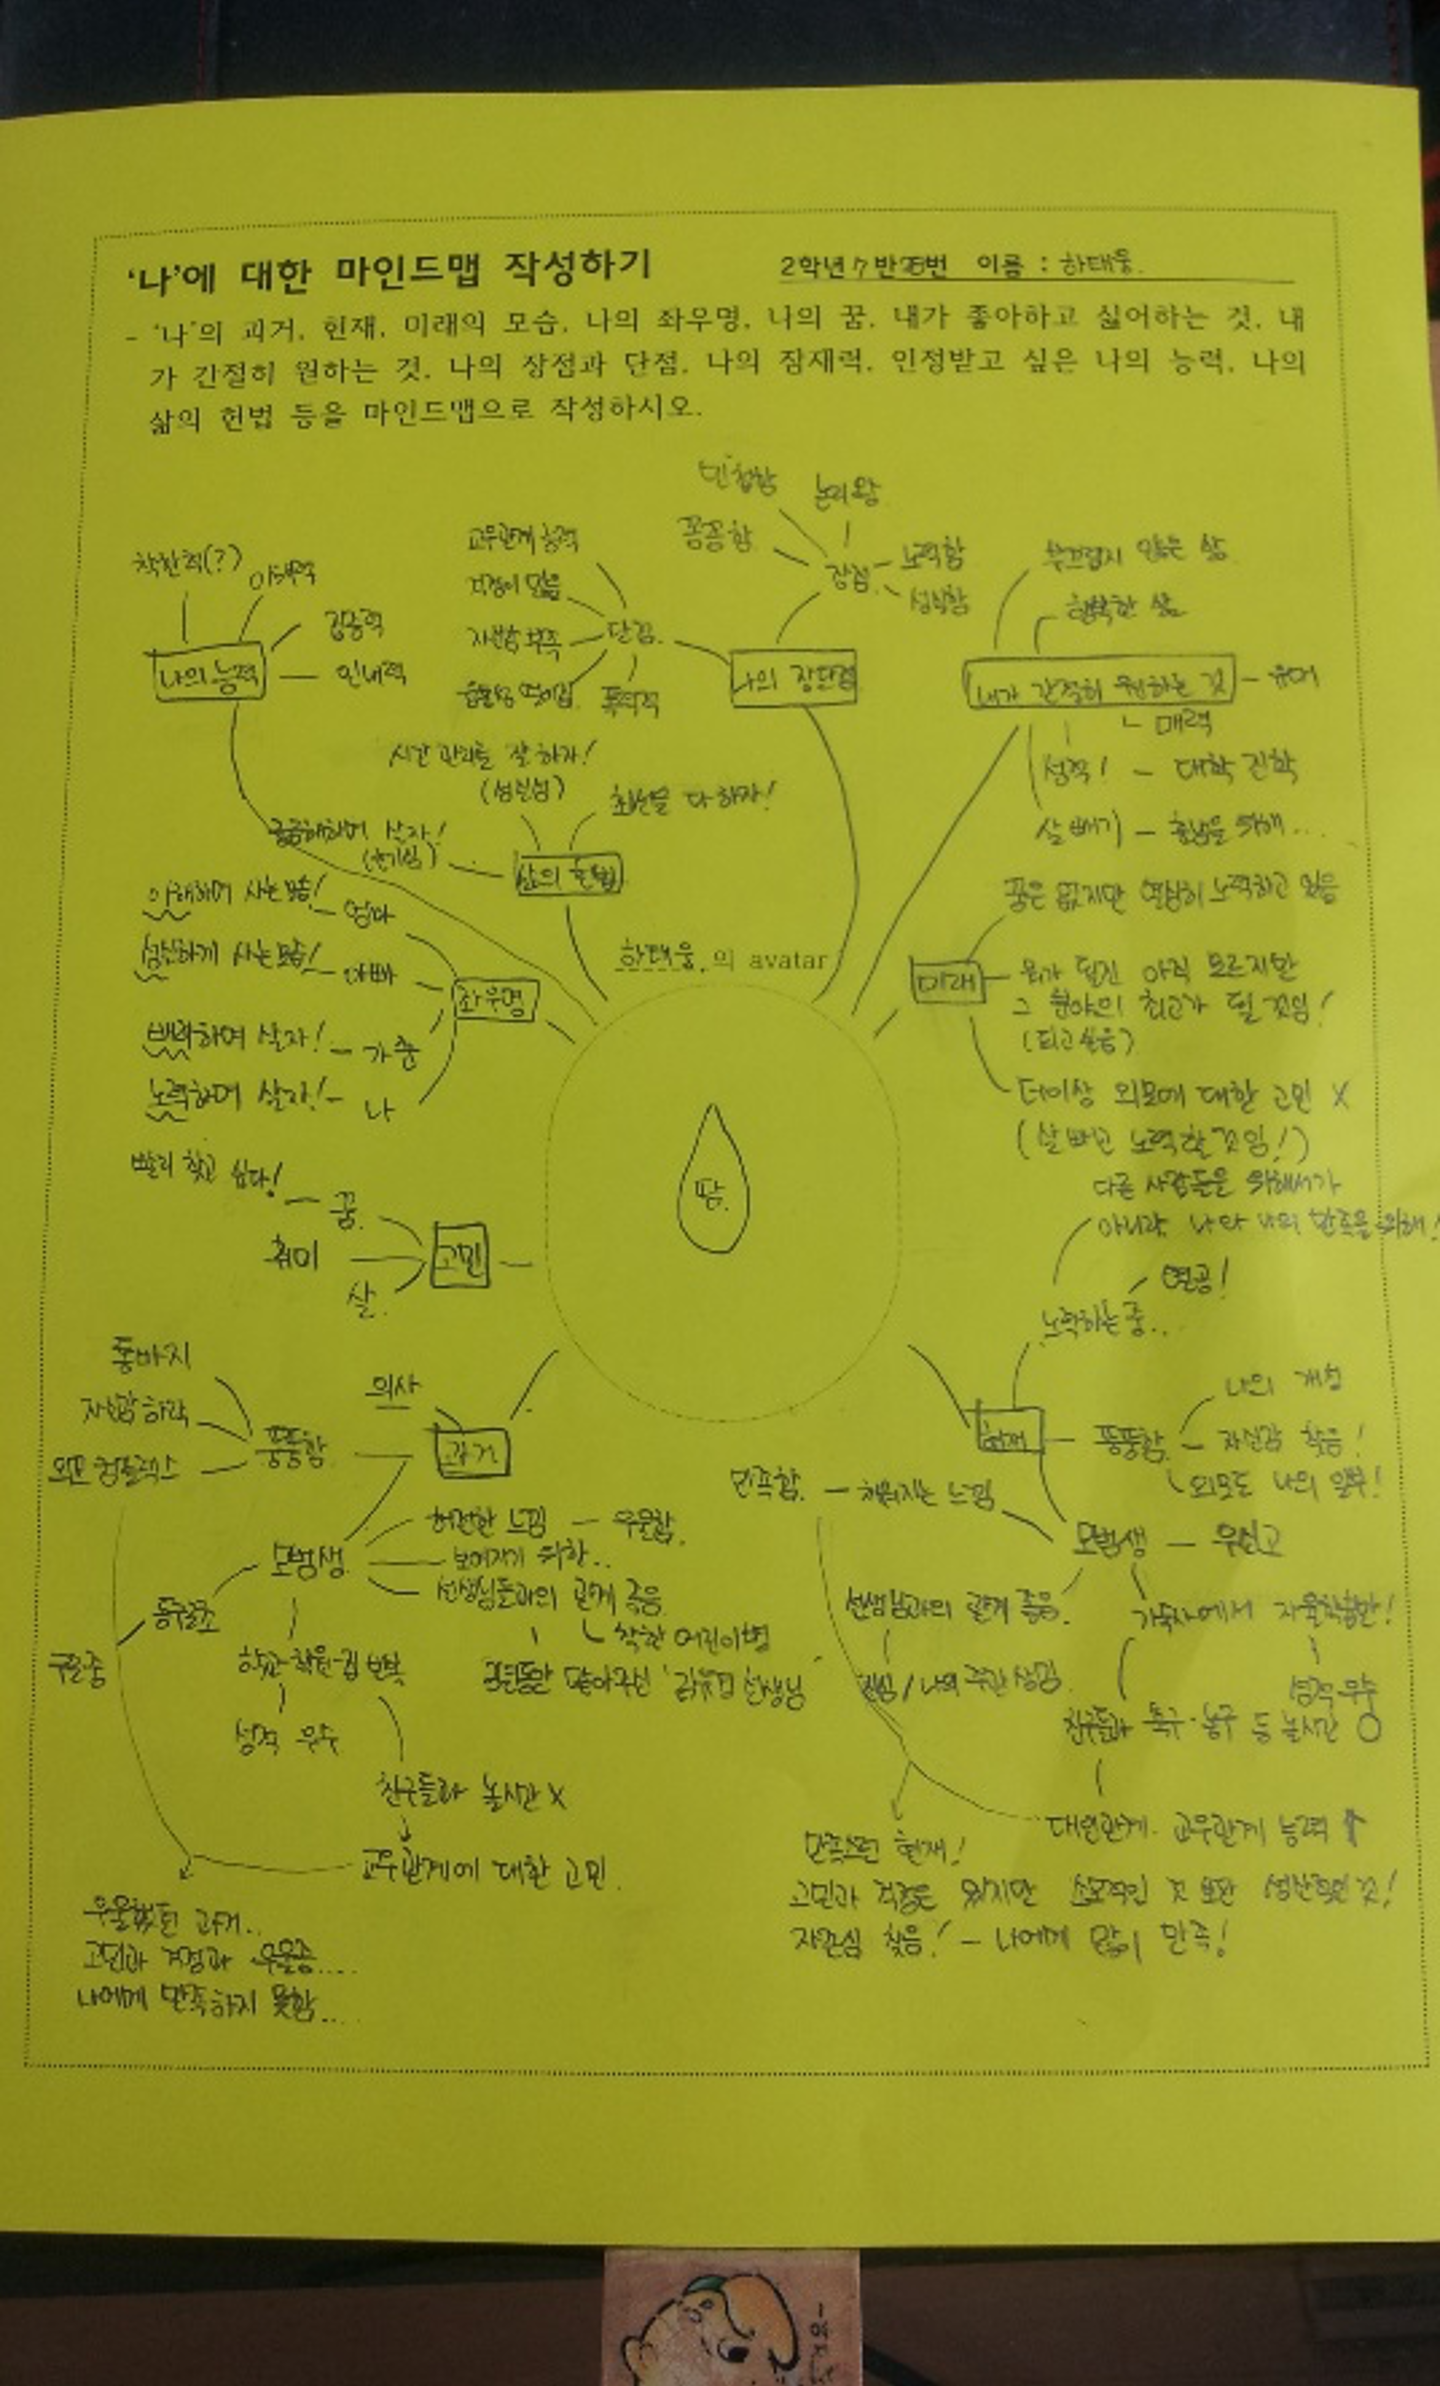 '나'에 대한 마인드맵 작성하기
2학년 7반 번 이름 : 하태웅
- '나'의 과거, 현재, 미래의 모습, 나의 좌우명, 나의 꿈, 내가 좋아하고 싫어하는 것, 내
가 간절히 원하는 것, 나의 장점과 단점, 나의 잠재력, 인정받고 싶은 나의 능력, 나의
삶의 헌법 등을 마인드맵으로 작성하시오.
민첩함
논리왕
꼼꼼함
장점
노력함
성실함
교우관계 능력
걱정이 많음
자신감 부족
단점
나의 장단점
착한척(?)
이해력
집중력
인내력
나의 능력
부끄럽지 않은 삶
행복한 삶
내가 간절히 원하는 것 - 유머
매력
성적! - 대학 진학
살빼기 - 훈남을 위해...
시간 관리를 잘 하자!
(성실성)
최선을 다하자!
궁금해하며 살자!
(호기심)
삶의 헌법
이해하며 사는 모습! - 엄마
성실하게 사는 모습! - 아빠
하며 살자! - 가훈
노력하며 살자! - 나
좌우명
하태웅의 avatar
땀
꿈은 없지만 열심히 노력하고 있음
미래
뭐가 될진 아직 모르지만
그 분야의 최고가 될 것임!
(되고싶음)
더이상 외모에 대한 고민 X
(살 빼고 노력할 것임!)
빨리 찾고 싶다! - 꿈
취미
살
고민
다른 사람들을 위해서가
아니라 나와 나의 만족을 위해!
열공!
노력하는 중..
현재
뚱뚱함
나의 개성
자신감 찾음!
외모도 나의 일부!
모범생 - 우신고
만족함 - 채워지는 느낌
선생님과의 관계 좋음
/ 나의 주관 생김
기숙사에서 자율학습만!
성적 우수
친구들과 축구·농구 등 놀시간 O
대인관계·교우관계 능력 ↑
만족스런 현재!
고민과 걱정은 있지만 소모적인 것 보단 생산적인 것!
자존심 찾음! - 나에게 많이 만족!
의사
과거
뚱뚱함
통바지
자신감 하락
외모 컴플렉스
모범생
허전한 느낌 - 우울함
보여지기 위한..
선생님들과의 관계 좋음
착한 어린이병
우울증
학교-학원-집 반복
성적 우수
친구들과 놀시간 X
교우관계에 대한 고민
우울했던 과거..
고민과 걱정과 우울증....
나에게 만족하지 못함....